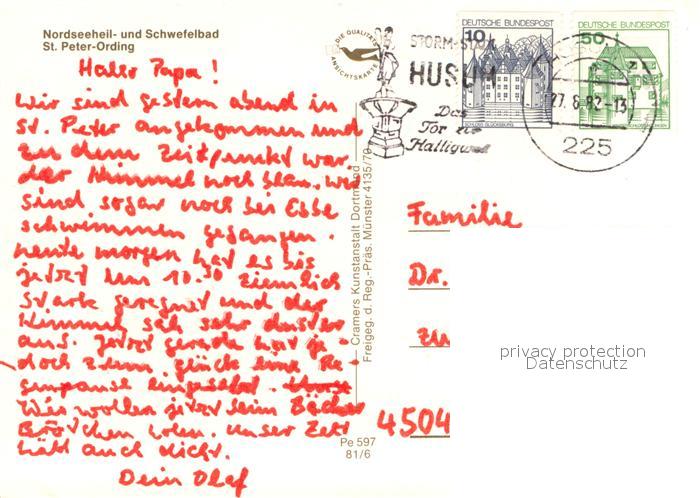 Nordseeheil- und Schwefelbad
St. Peter-Ording
Hallo Papa!
Wir sind gestern abend in
St. Peter angekommen und
zu dem Zeitpunkt war
der Himmel noch blau. Wir
sind sogar noch bei Ebbe
schwimmen gegangen.
heute morgen hat es bis
jetzt um 10.30 ziemlich
stark geregnet und der
Himmel sah sehr duster
aus. Jetzt gerade hat je-
doch zum glück eine Re-
genpause
Wir wollen jetzt beim Bäcker
Brötchen holen. Unser Zelt
hält auch dicht.
Dein Olaf
DIE QUALITÄTS
ANSICHTSKARTE
Cramers Kunstanstalt Dortmund
Freigeg. d. Reg.-Präs. Münster 4135/76
Pe 597
81/6
STORM-STADT
HUSUM
Das
Tor zur
Halligwelt
DEUTSCHE BUNDESPOST
10
SCHLOSS GLÜCKSBURG
DEUTSCHE BUNDESPOST
50
27.8.82-13
225
Familie
Dr.
4504
privacy protection
Datenschutz